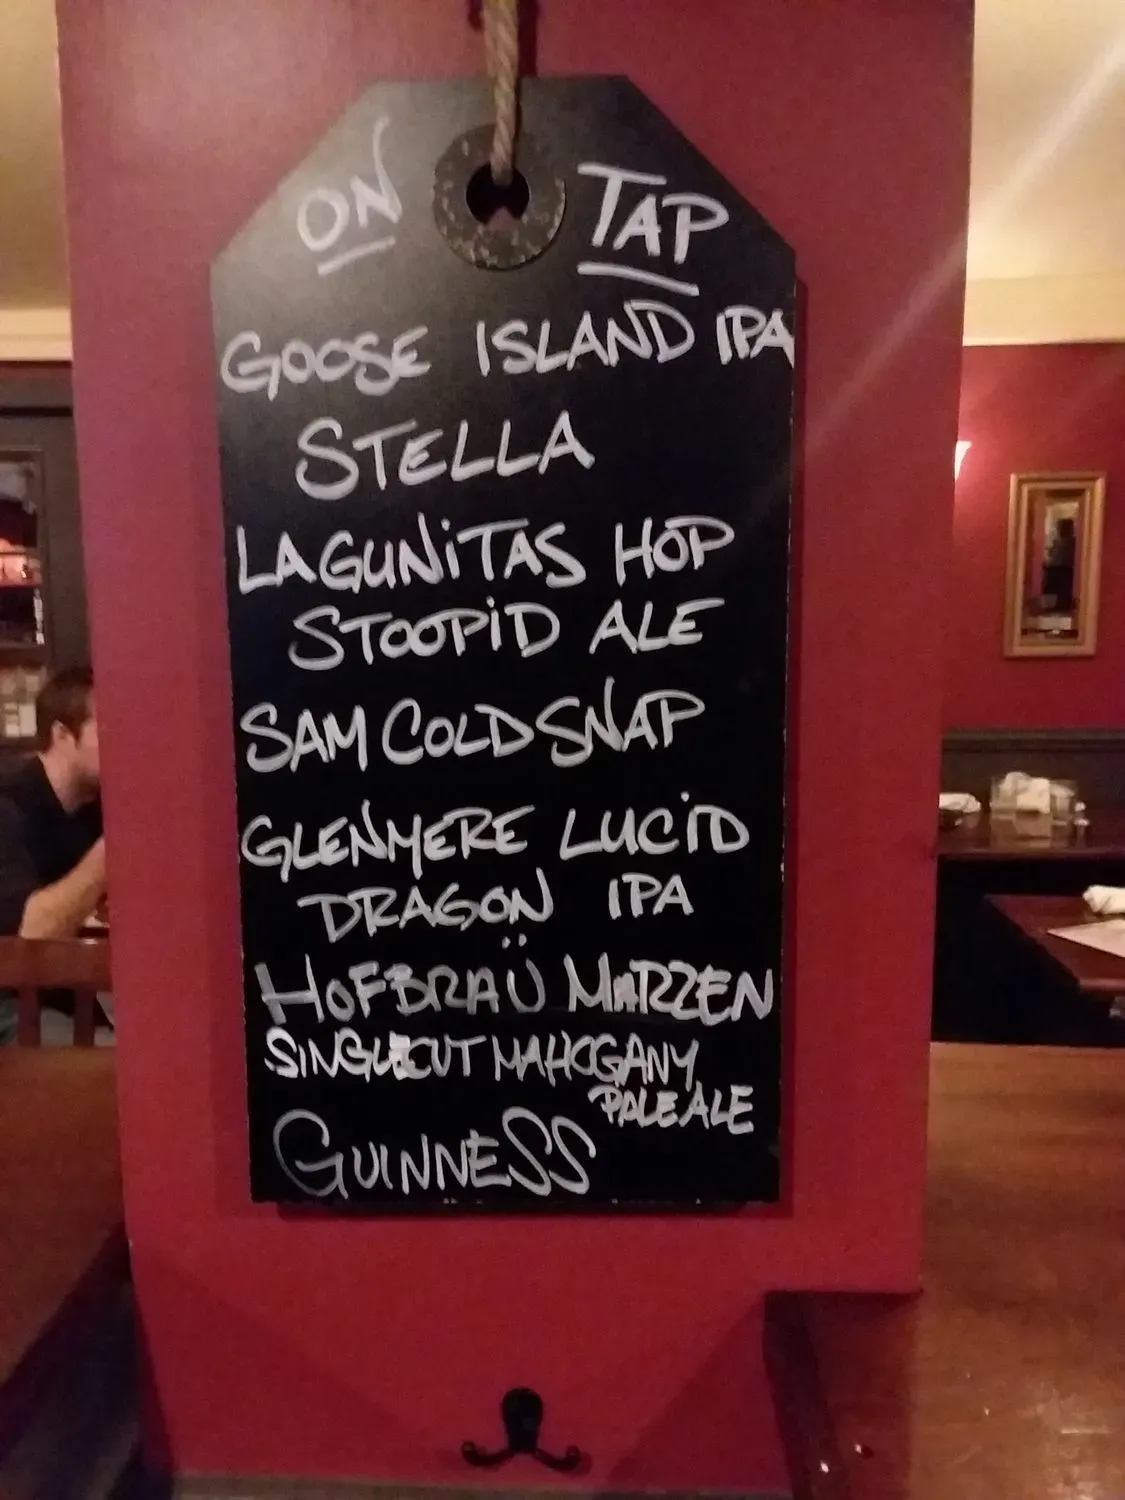 ON TAP
GOOSE ISLAND IPA
STELLA
LAGUNiTAS HOP
STOOPiD ALE
SAM COLD SNAP
GLENMERE LUCiD
DRAGON IPA
HOFBRAÜ MARZEN
SiNGLECUT MAHOGANY
PALE ALE
GUINNESS